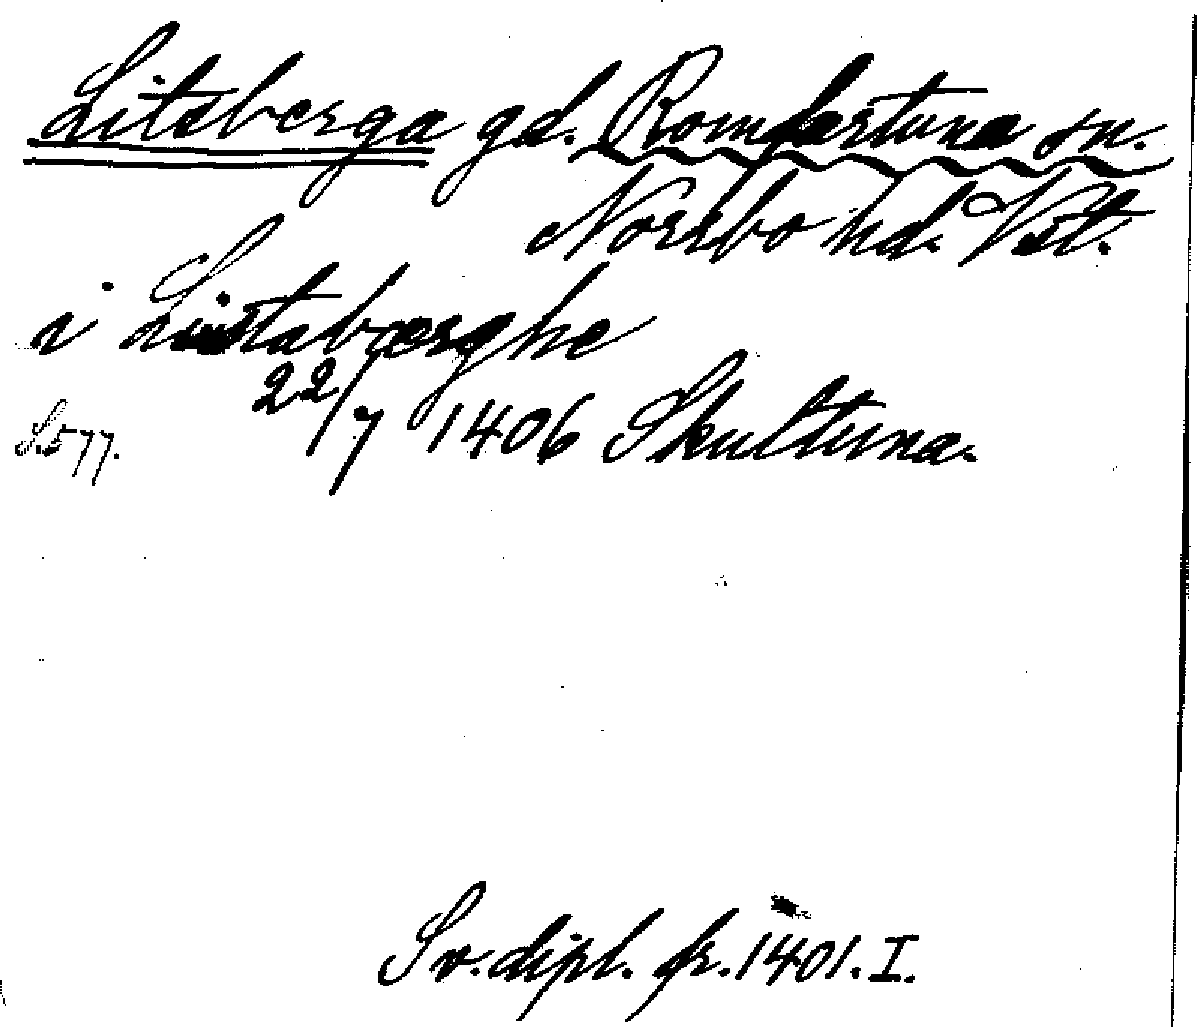 Litsberga gd. Romfartuna sn.
Norrbo hd. Vst.
i Listabærghe
22/7 1406 Skultuna.
S.577.
Sv. dipl. fr. 1401. I.